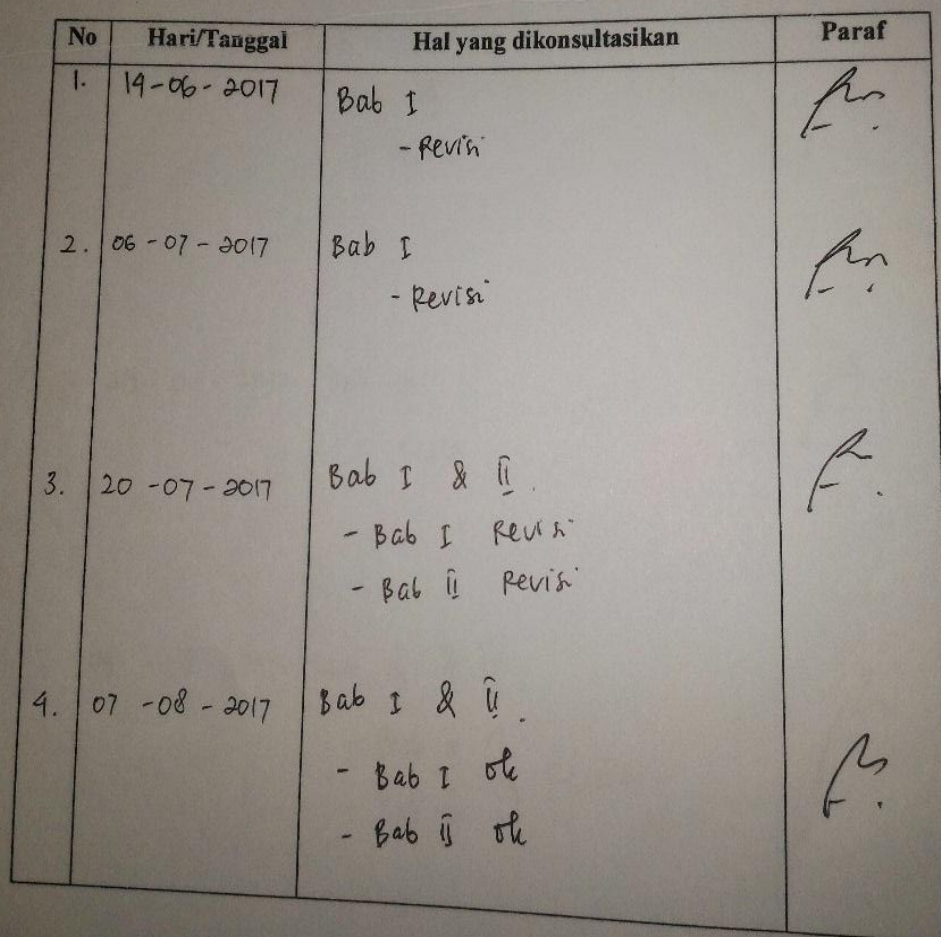 No Hari/Tanggal Hal yang dikonsultasikan Paraf
1. 14-06-2017 Bab I
- Revisi
2. 06-07-2017 Bab I
- Revisi
3. 20-07-2017 Bab I & II.
- Bab I Revisi
- Bab II Revisi
4. 07-08-2017 Bab I & II.
- Bab I ok
- Bab II ok